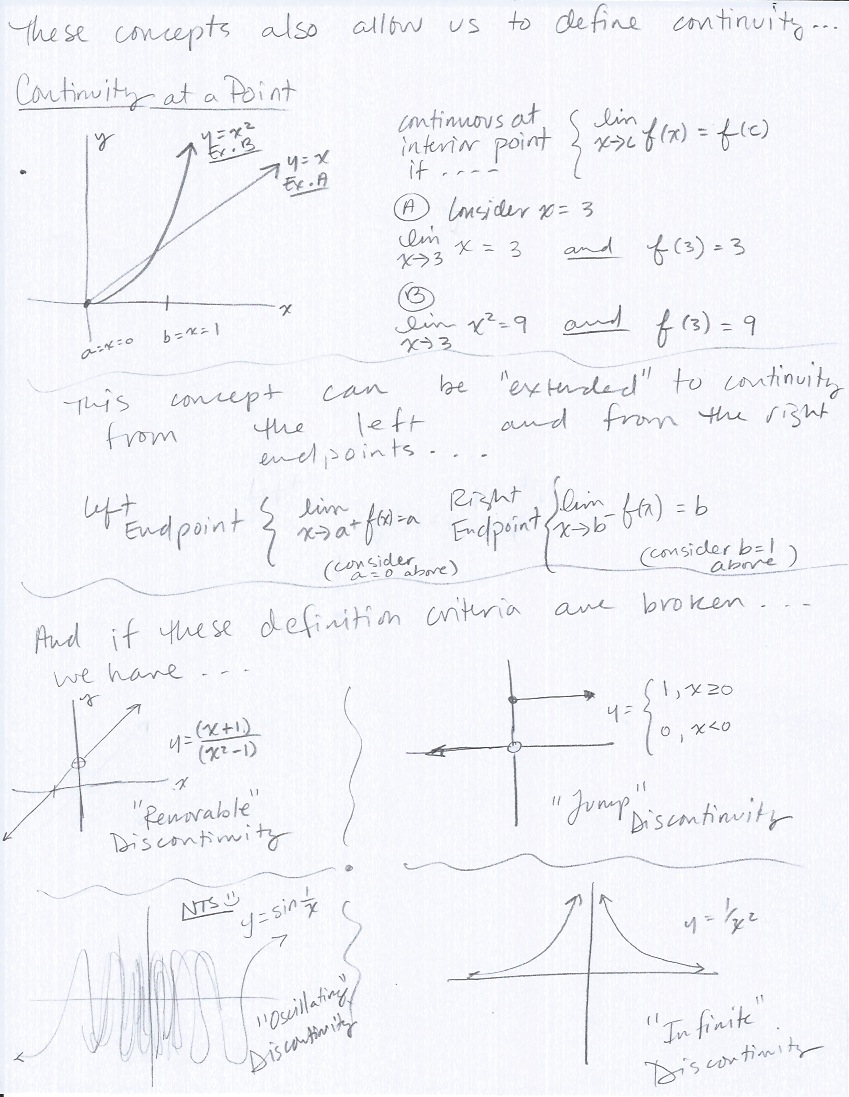 These concepts also allow us to define continuity...
Continuity at a Point
y
y=x²
Ex. B
y=x
Ex. A
x
a=x=0
b=x=1
continuous at
interior point
if ....
{ lim x→c f(x) = f(c)
(A) Consider x = 3
lim x→3 x = 3 and f(3) = 3
(B)
lim x→3 x² = 9 and f(3) = 9
This concept can be "extended" to continuity
from the left and from the right
endpoints....
Left
Endpoint { lim x→a⁺ f(x)=a
(consider
a=0 above)
Right
Endpoint { lim x→b⁻ f(x) = b
(consider b=1
above)
And if these definition criteria are broken....
we have ...
y
x
y = (x+1)/(x²-1)
"Removable"
Discontinuity
y = { 1, x≥0
0, x<0
"Jump"
Discontinuity
NTS
y = sin 1/x
"Oscillating"
Discontinuity
y = 1/x²
"Infinite"
Discontinuity